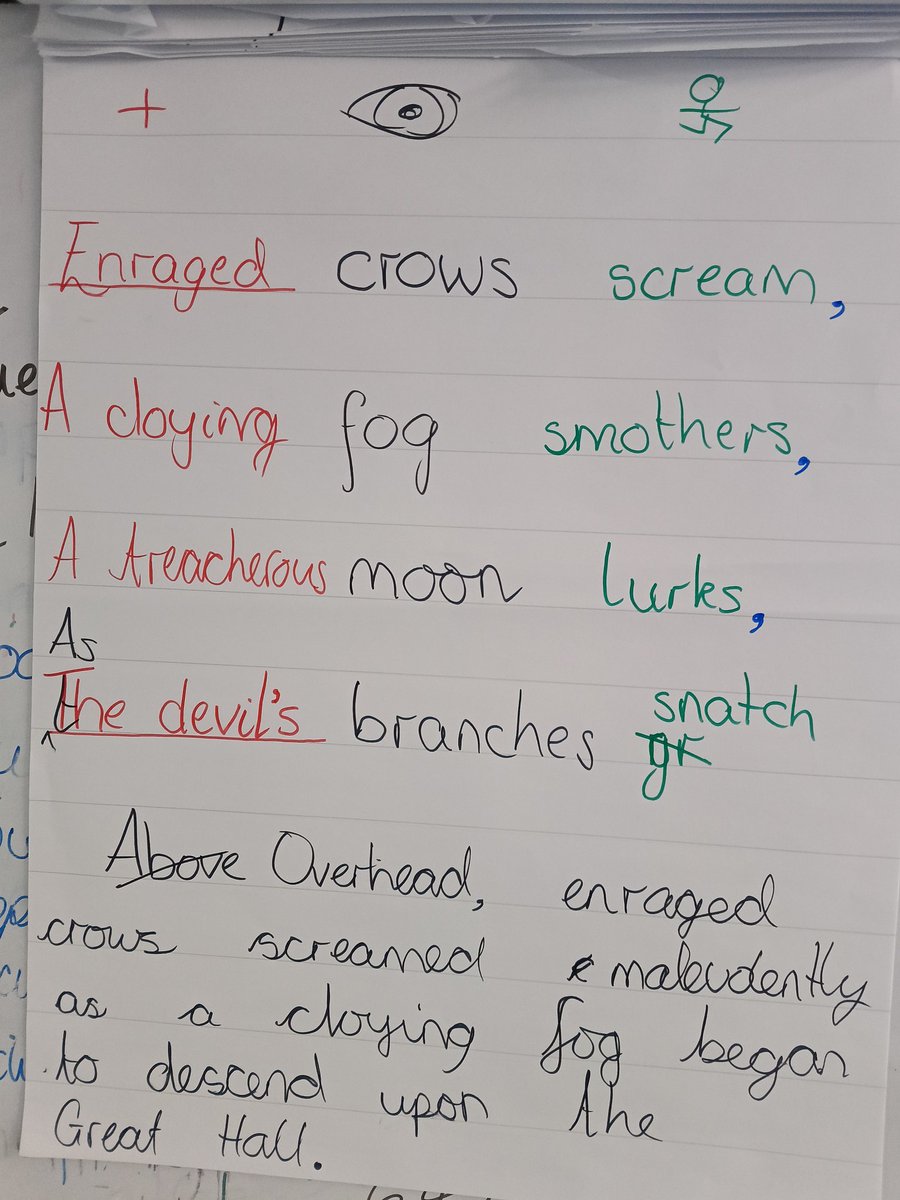 +
Enraged crows scream,
A cloying fog smothers,
A treacherous moon lurks,
As
the devil's branches snatch
gr
Above Overhead, enraged
crows screamed malevolently
as a cloying fog began
to descend upon the
Great Hall.